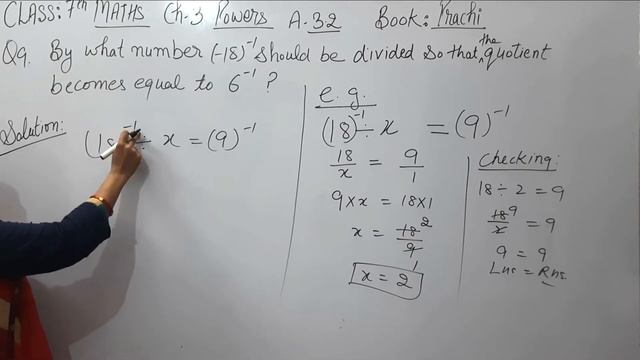 CLASS: 7th MATHS Ch-3 Powers A-3.2 Book: Prachi
Q9. By what number (-18)⁻¹ should be divided so that the quotient
becomes equal to 6⁻¹ ?
Solution:
(18⁻¹ ÷ x = (9)⁻¹
e.g.
(18)⁻¹ ÷ x = (9)⁻¹
18/x = 9/1
9 x x = 18x1
x = 18/9 2 1
x = 2
Checking:
18 ÷ 2 = 9
18/2 9 = 9
9 = 9
LHS = RHS